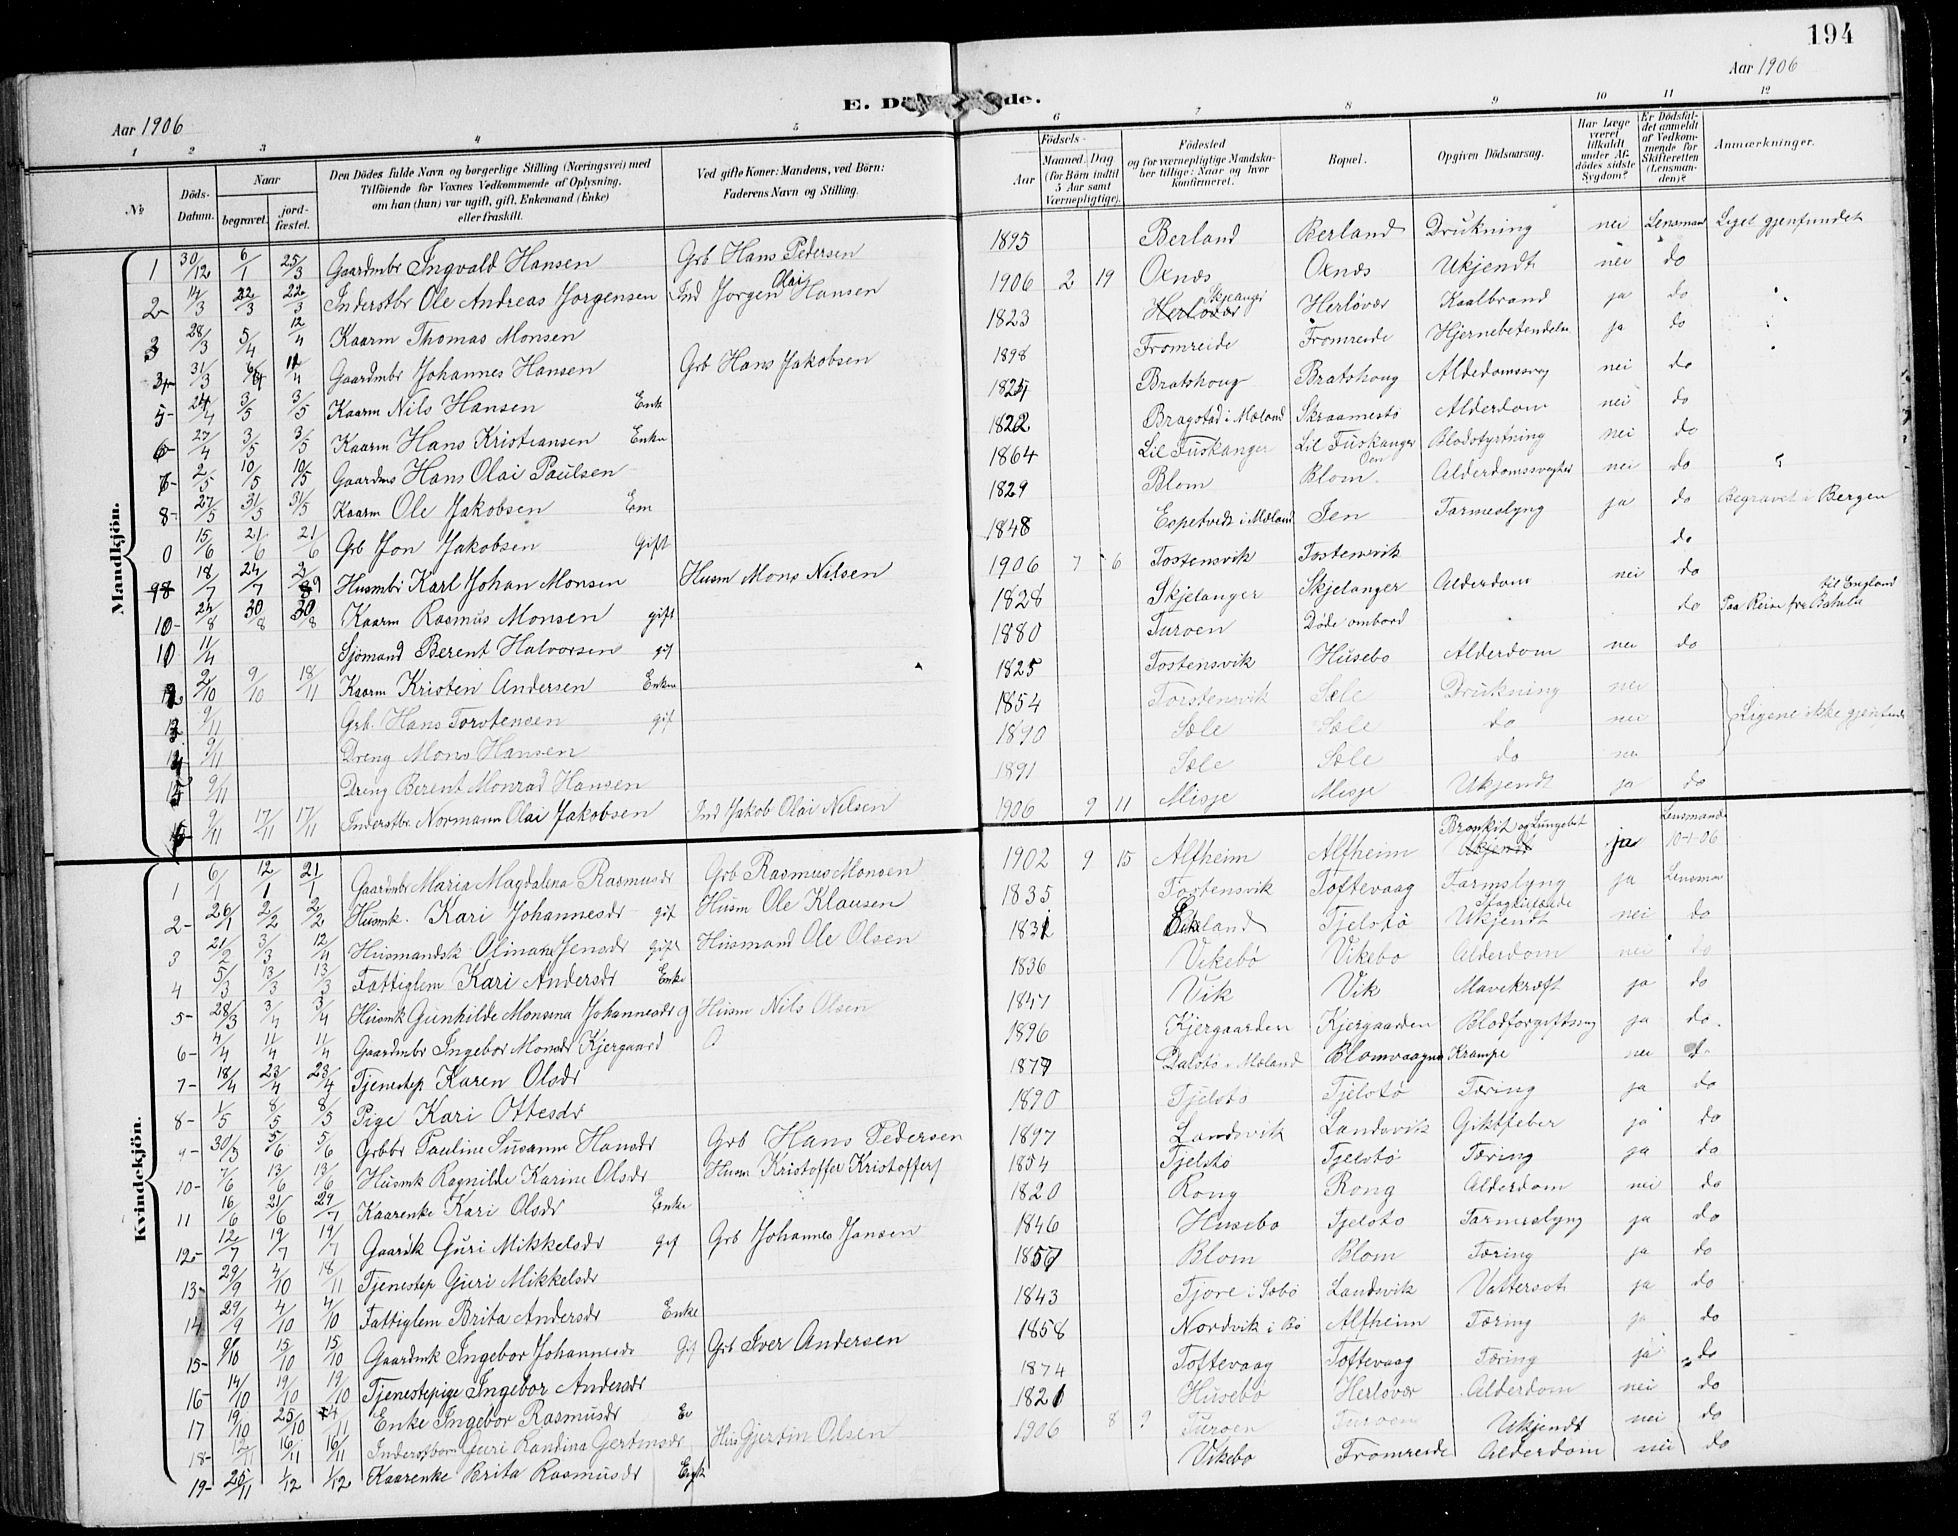 194
Aar 1906
Aar 1906
E. Dö de.
1 2 3 4 5 6 7 8 9 10 11 12
№
Döds-Datum.
Naar begravet. jordfæstet.
Den Dödes fulde Navn og borgerlige Stilling (Næringsvei) med Tilföiende for Voxnes Vedkommende af Oplysning, om han (hun) var ugift, gift, Enkemand (Enke) eller fraskilt.
Ved gifte Koner: Mandens, ved Börn: Faderens Navn og Stilling.
Födsels-
Aar
Maaned. Dag (for Börn indtil 5 Aar samt Værnepligtige).
Födested og for værnepligtige Mandskaber tillige: Naar og hvor Konfirmeret.
Bopæl.
Opgiven Dödsaarsag.
Har Læge været tilkaldt under Afdödes sidste Sygdom?
Er Dödsfaldet anmeldt af Vedkommende for Skifteretten (Lensmanden)?
Anmærkninger.
Mandkjön.
1 30/12 6/1 25/3 Gaardmbr Ingvald Hansen Grb Hans Pedersen 1895 Berland Berland Drukning nei Lensmand Liget gjenfundet
2 14/3 22/3 22/3 Inderstbr Ole Andreas Jorgensen Ind Jorgen Olai Hansen 1906 2 19 Oxnes Oxnes Ukjendt nei do
3 28/3 5/4 12/4 Kaarm Thomas Monsen 1823 Herlövær Skjelanger Herlövær Kaalbrand ja do
4 31/3 6/4 12/4 Gaardmbr Johannes Hansen Grb Hans Jakobsen 1898 Fromreide Fromreide Hjernebetendelse ja do
5 24/4 3/5 3/5 Kaarm Nils Hansen Enk 1824 Bratshoug Bratshoug Alderdomssvag nei do
6 27/4 3/5 3/5 Kaarm Hans Kristiansen Enkm 1822 Bragstad i Mæland Skraamestö Alderdom nei do
7 2/5 10/5 10/5 Gaardms Hans Olai Paulsen 1864 Lil Fuskanger Lil Fuskanger Blodstyrtning nei do
8 27/5 31/5 31/5 Kaarm Ole Jakobsen Em 1829 Blom Blom Alderdomssvaghed nei do
0 15/6 21/6 21/6 Grb Jon Jakobsen Gift 1848 Espetvedt i Mæland Jen Tarmeslyng ja do Begravet i Bergen
9 18/7 24/7 2/9 Husmbr Karl Johan Monsen Husm Mons Nilsen 1906 7 6 Tostensvik Tostensvik do
10 24/8 30/8 30/8 Kaarm Rasmus Monsen gift 1828 Skjelanger Skjelanger Alderdom nei do
11 11/4 Sjömand Berent Halvorsen gif 1880 Turoen Döde ombord do Paa Reise fra Batalu til England
12 2/10 9/10 18/11 Kaarm Kristen Andersen Enkm 1825 Tostensvik Husebo Alderdom nei do
13 9/11 Grb. Hans Torstensen gif 1854 Torstensvik Sæle Drukning nei
14 9/11 Dreng Mons Hansen 1890 Sæle Sæle do nei Ligene ikke gjenfundne
15 9/11 Dreng Berent Monrad Hansen 1891 Sæle Sæle do nei
16 9/11 17/11 17/11 Inderstbr. Normann Olai Jakobsen Ind Jakob Olai Nilsen 1906 9 11 Misje Misje Ukjendt ja do
Kvindekjön.
1 6/1 12/1 21/1 Gaardmbr Maria Magdalena Rasmusdr Grb Rasmus Monsen 1902 9 15 Alfheim Alfheim Bronkit og Lungebet Ukjendt ja Lensmand 10-1-06
2 26/1 2/2 2/2 Husmk. Kari Johannesdr gif Husm Ole Klausen 1835 Tostensvik Toftevaag Tarmslyng ja Lensman
3 21/2 3/3 12/4 Husmandsk Olinana Jensdr Gift Husmand Ole Olsen 1831 Eikeland Tjelstö Ukjendt nei do
4 5/3 13/3 13/3 Fattiglem Kari Andersdr Enke 1836 Vikebö Vikebo Alderdom nei do
5 28/3 3/4 3/4 Husmk Gunhilde Monsina Johannesdr g Husm Nils Olsen 1847 Vik Vik Mavekræft ja do
6 4/4 11/4 11/4 Gaardmbr Ingebor Monsdr Kjergaard 1896 Kjergaarden Kjergaarden Blodforgiftning ja do
7 18/4 23/4 23/4 Tjenestep Karen Olsdr 1877 Dalstö i Mæland Blomvaagnæ Krampe nei do
8 1/5 8/5 8/5 Pige Kari Ottesdr 1890 Tjelsto Tjelstö Tæring ja do
9 30/3 5/6 5/6 Grbbr Pauline Susanna Hansdr Grb Hans Pedersen 1897 Landsvik Landsvik Giktfeber ja do
10 7/6 13/6 13/6 Husmk Ragnilde Karine Olsdr Husm Kristoffer Kristoffers 1854 Tjelstö Tjelstö Tæring ja do
11 16/6 21/6 29/7 Kaarenke Kari Olsdr Enke 1820 Rong Rong Alderdom nei do
12 12/7 19/7 19/7 Gaardk Guri Mikkelsdr Gif Grb Johannes Jansen 1846 Husebo Tjelsto Tarmeslyng ja do
13 29/9 4/10 18/11 Tjenestep Guri Mikkelsdr 1857 Blom Blom Tæring ja do
14 29/9 4/10 4/10 Fattiglem Brita Andersdr Enke 1843 Fjore i Sæbö Landsvik Vattersot ja do
15 9/10 15/10 15/10 Gaardmk Ingebor Johannesdr Gif Grb Iver Andersen 1858 Nordvik i Bö Alfheim Tæring ja do
16 14/10 19/10 19/10 Tjenestepige Ingebor Andersdr 1874 Toftevaag Toftevaag Tæring ja do
17 19/10 25/10 4/11 Enke Ingebor Rasmusdr En 1821 Husebö Herlovær Alderdom nei do
18 12/11 16/11 16/11 Inderstbarn Guri Randina Gertinsdr Hus Gjertin Olsen 1906 8 9 Turoen Turoen Ukjendt nei do
19 25/11 1/12 1/12 Kaarenke Brita Rasmusdr Enk Vikebo Fromreide Alderdom nei do